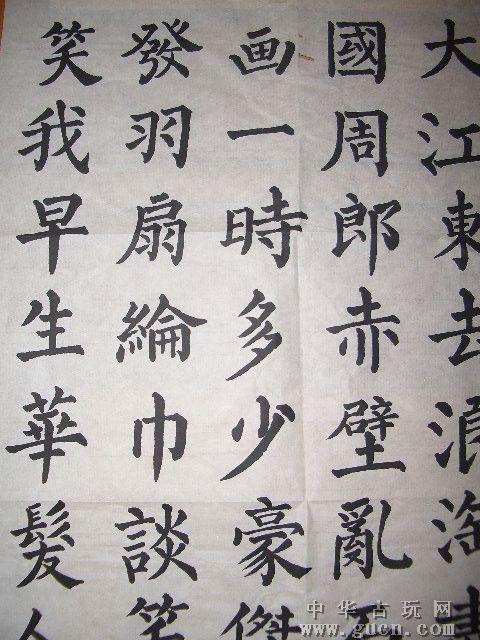 大江東去浪淘
國周郎赤壁亂
画一時多少豪傑
發羽扇綸巾談笑
笑我早生華髮人
中华古玩网
www.gucn.com